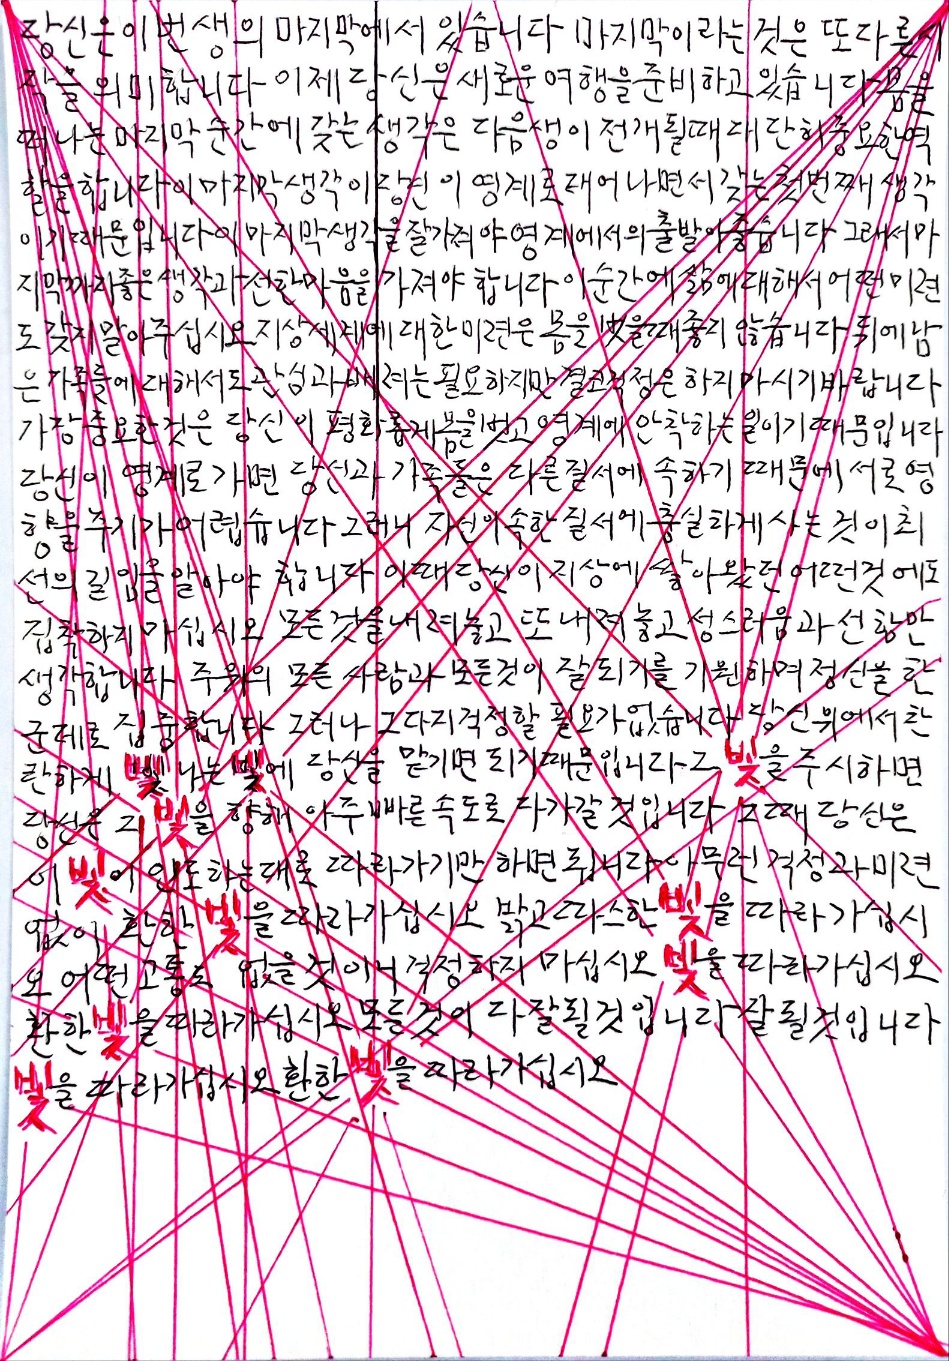 당신은 이번 생의 마지막에서 있습니다 마지막이라는 것은 또다른시
작을 의미합니다 이제 당신은 새로운 여행을 준비하고 있습니다 몸을
떠나는 마지막 순간에 갖는 생각은 다음생이 전개될때 대단히 중요한역
할을 합니다 이 마지막 생각이 당신이 영계로 태어나면서 갖는 첫번째 생각
이기 때문입니다 이 마지막생각을 잘가져야 영계에서의 출발이 좋습니다 그래서 마
지막까지 좋은 생각과 선한마음을 가져야 합니다 이순간에 삶에 대해서 어떤 미련
도 갖지 말아주십시오 지상세계에 대한 미련은 몸을 벗을때 좋지 않습니다 뒤에 남
은 가족들에 대해서도 관심과 배려는 필요하지만 결코 걱정은 하지 마시기 바랍니다
가장 중요한 것은 당신이 평화롭게 몸을 벗고 영계에 안착하는 일이기 때문입니다
당신이 영계로 가면 당신과 가족들은 다른 질서에 속하기 때문에 서로 영
향을 주기가 어렵습니다 그러니 자신이 속한 질서에 충실하게 사는 것이 최
선의 길임을 알아야 합니다 이때 당신이 지상에 살아왔던 어떤것에도
집착하지 마십시오 모든것을 내려놓고 또 내려놓고 성스러움과 선함만
생각합니다 주위의 모든 사람과 모든것이 잘되기를 기원하며 정신을 한
군데로 집중합니다 그러나 그다지 걱정할 필요가 없습니다 당신 위에서 찬
란하게 빛나는 빛에 당신을 맡기면 되기 때문입니다 그 빛을 주시하면
당신은 그 빛을 향해 아주 빠른 속도로 다가갈 것입니다 그때 당신은
이 빛이 인도하는대로 따라가기만 하면 됩니다 아무런 걱정과 미련
없이 환한 빛을 따라가십시오 밝고 따스한 빛을 따라가십시
오 어떤 고통도 없을것이니 걱정하지 마십시오 빛을 따라가십시오
환한 빛을 따라가십시오 모든것이 다 잘될것입니다 잘될것입니다
빛을 따라가십시오 환한 빛을 따라가십시오